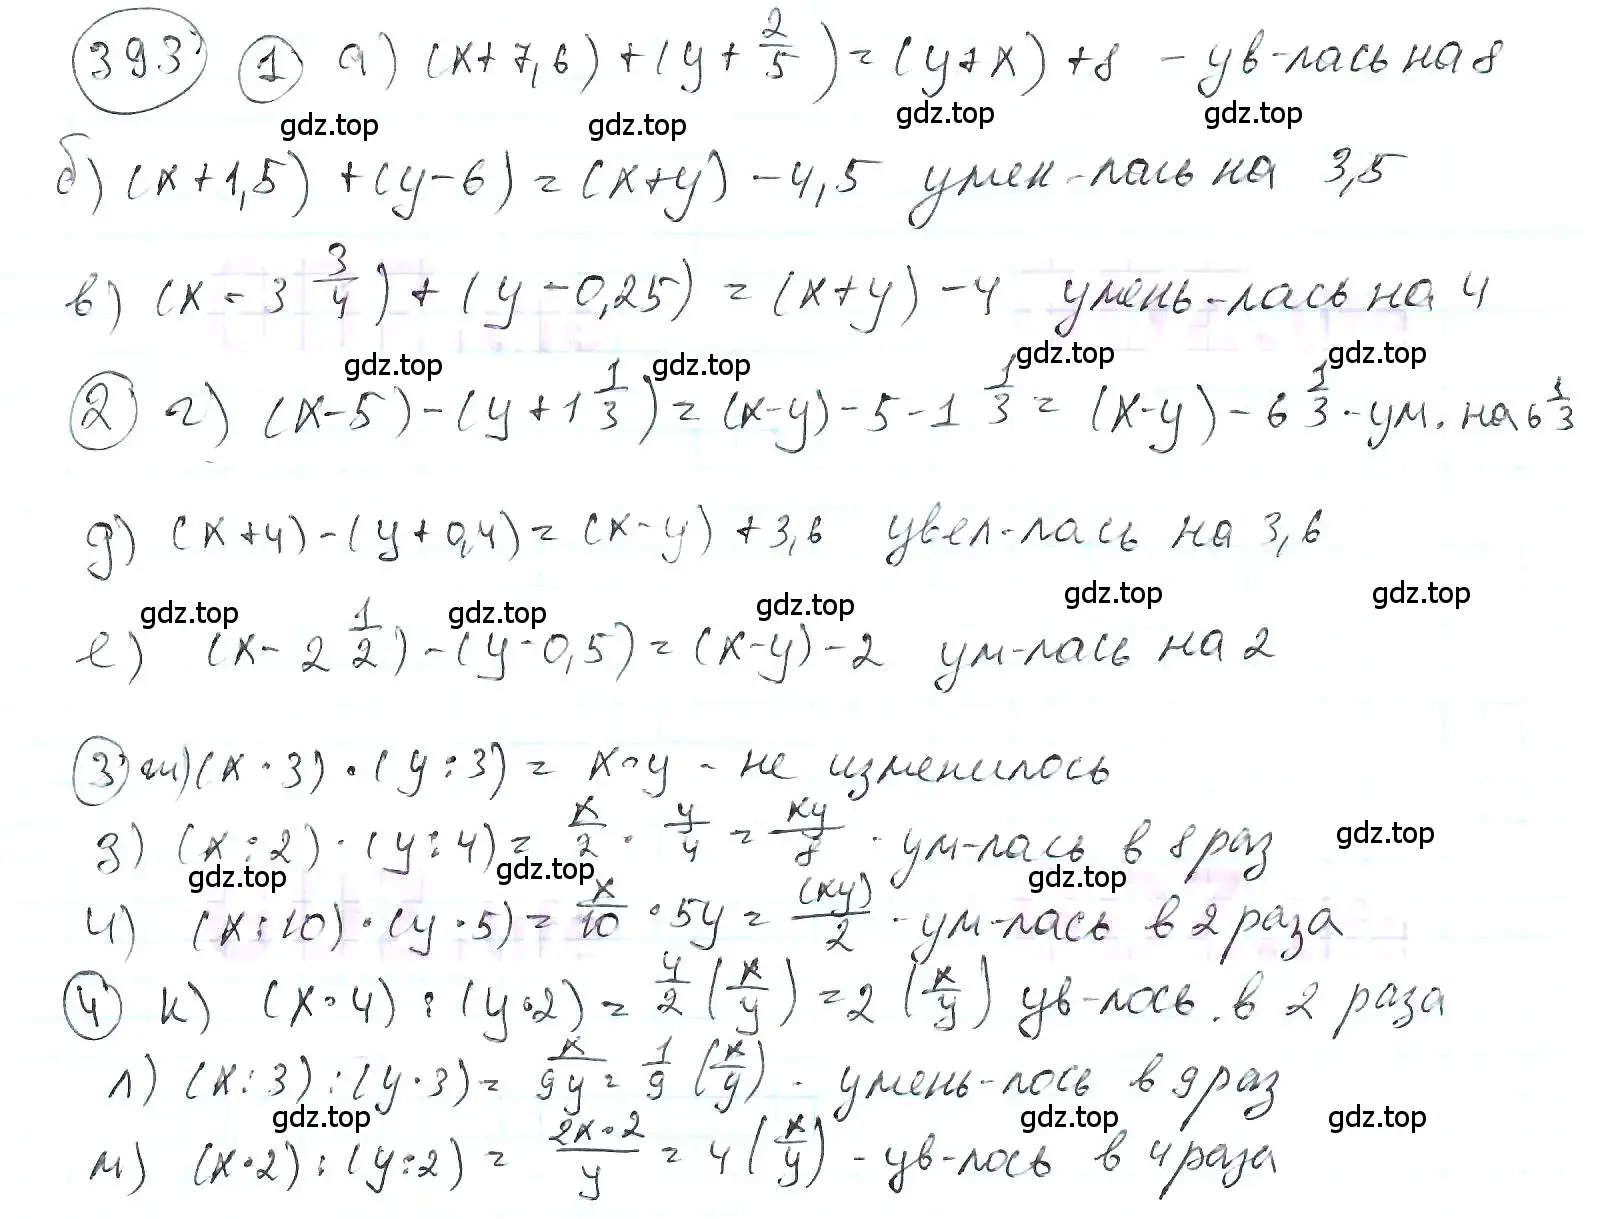 393 1 а) (x+7,6)+(y+2/5)=(y+x)+8 - ув-лась на 8
gdz.top gdz.top gdz.top gdz.top
б) (x+1,5)+(y-6)=(x+y)-4,5 умен-лась на 3,5
в) (x-3 3/4)+(y-0,25)=(x+y)-4 умень-лась на 4
gdz.top gdz.top gdz.top gdz.top
2 г) (x-5)-(y+1 1/3)=(x-y)-5-1 1/3=(x-y)-6 1/3 - ум. на 6 1/3
д) (x+4)-(y+0,4)=(x-y)+3,6 увел-лась на 3,6
gdz.top gdz.top gdz.top gdz.top gdz.top
е) (x-2 1/2)-(y-0,5)=(x-y)-2 ум-лась на 2
3 ж) (x·3)·(y:3)=x·y - не изменилось
з) (x:2)·(y:4)=x/2·y/4=xy/8 - ум-лась в 8 раз gdz.top
gdz.top gdz.top gdz.top
и) (x:10)·(y·5)=x/10·5y=(xy)/2 - ум-лась в 2 раза
4 к) (x·4):(y·2)=4/2(x/y)=2(x/y) ув-лось. в 2 раза
л) (x:3):(y·3)=x/9y=1/9(x/y) - умень-лось в 9 раз
gdz.top gdz.top gdz.top
м) (x·2):(y:2)=2x·2/y=4(x/y) - ув-лось в 4 раза